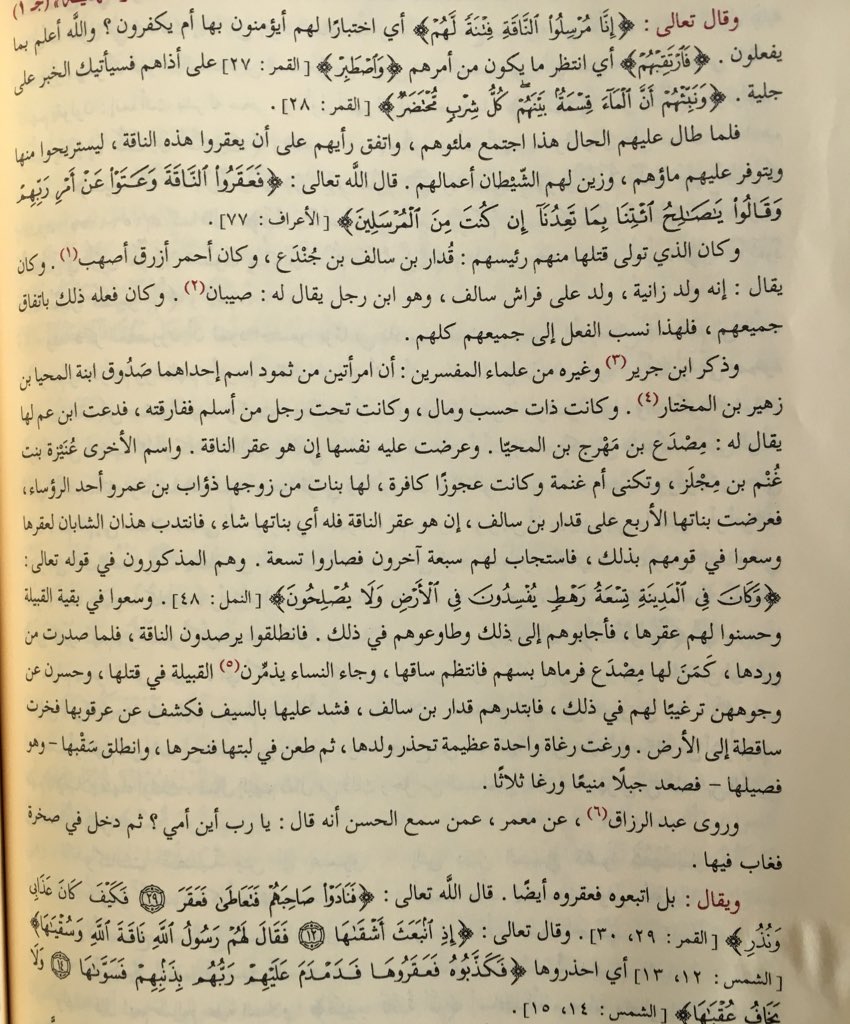 (جـ ١)
وقال تعالى : ﴿إِنَّا مُرْسِلُوا النَّاقَةِ فِتْنَةً لَّهُمْ﴾ أي اختبارًا لهم أيؤمنون بها أم يكفرون ؟ واللَّه أعلم بما
يفعلون . ﴿فَارْتَقِبْهُمْ﴾ أي انتظر ما يكون من أمرهم ﴿وَاصْطَبِرْ﴾ [القمر : ٢٧] على أذاهم فسيأتيك الخبر على
جلية . ﴿وَنَبِّئْهُمْ أَنَّ الْمَاءَ قِسْمَةٌ بَيْنَهُمْ كُلُّ شِرْبٍ مُّحْتَضَرٌ﴾ [القمر : ٢٨] .
فلما طال عليهم الحال هذا اجتمع ملئوهم ، واتفق رأيهم على أن يعقروا هذه الناقة ، ليستريحوا منها
ويتوفر عليهم ماؤهم ، وزين لهم الشَّيْطان أعمالهم . قال اللَّه تعالى : ﴿فَعَقَرُوا النَّاقَةَ وَعَتَوْا عَنْ أَمْرِ رَبِّهِمْ
وَقَالُوا يَاصَالِحُ ائْتِنَا بِمَا تَعِدُنَا إِن كُنتَ مِنَ الْمُرْسَلِينَ﴾ [الأعراف : ٧٧] .
وكان الذي تولى قتلها منهم رئيسهم : قُدار بن سالف بن جُنْدَع ، وكان أحمر أزرق أصهب(١) . وكان
يقال : إنه ولد زانية ، ولد على فراش سالف ، وهو ابن رجل يقال له : صيبان(٢) . وكان فعله ذلك باتفاق
جميعهم ، فلهذا نسب الفعل إلى جميعهم كلهم .
وذكر ابن جرير(٣) وغيره من علماء المفسرين : أن امرأتين من ثمود اسم إحداهما صَدُوق ابنة المحيا بن
زهير بن المختار(٤) . وكانت ذات حسب ومال ، وكانت تحت رجل من أسلم ففارقته ، فدعت ابن عم لها
يقال له : مِصْدَع بن مَهْرج بن المحيّا . وعرضت عليه نفسها إن هو عقر الناقة . واسم الأخرى عُنَيْزة بنت
غُنْم بن مِجْلَز ، وتكنى أم غنمة وكانت عجوزًا كافرة ، لها بنات من زوجها ذؤاب بن عمرو أحد الرؤساء،
فعرضت بناتها الأربع على قدار بن سالف ، إن هو عقر الناقة فله أي بناتها شاء ، فانتدب هذان الشابان لعقرها
وسعوا في قومهم بذلك ، فاستجاب لهم سبعة آخرون فصاروا تسعة . وهم المذكورون في قوله تعالى:
﴿وَكَانَ فِي الْمَدِينَةِ تِسْعَةُ رَهْطٍ يُفْسِدُونَ فِي الْأَرْضِ وَلَا يُصْلِحُونَ﴾ [النمل : ٤٨] . وسعوا في بقية القبيلة
وحسنوا لهم عقرها ، فأجابوهم إلى ذلك وطاوعوهم في ذلك . فانطلقوا يرصدون الناقة ، فلما صدرت من
وردها ، كَمَنَ لها مِصْدَع فرماها بسهم فانتظم ساقها ، وجاء النساء يذمِّرن(٥) القبيلة في قتلها ، وحسرن عن
وجوههن ترغيبًا لهم في ذلك ، فابتدرهم قدار بن سالف ، فشد عليها بالسيف فكشف عن عرقوبها فخرت
ساقطة إلى الأرض . ورغت رغاة واحدة عظيمة تحذر ولدها ، ثم طعن في لبتها فنحرها ، وانطلق سَقْبها – وهو
فصيلها – فصعد جبلًا منيعًا ورغا ثلاثًا .
وروى عبد الرزاق(٦) ، عن معمر ، عمن سمع الحسن أنه قال : يا رب أين أمي ؟ ثم دخل في صخرة
فغاب فيها .
ويقال : بل اتبعوه فعقروه أيضًا . قال اللَّه تعالى : ﴿فَنَادَوْا صَاحِبَهُمْ فَتَعَاطَى فَعَقَرَ ٢٩ فَكَيْفَ كَانَ عَذَابِي
وَنُذُرِ﴾ [القمر : ٢٩، ٣٠] . وقال تعالى : ﴿إِذِ انْبَعَثَ أَشْقَاهَا ١٢ فَقَالَ لَهُمْ رَسُولُ اللَّهِ نَاقَةَ اللَّهِ وَسُقْيَاهَا﴾
[الشمس : ١٢، ١٣] أي احذروها ﴿فَكَذَّبُوهُ فَعَقَرُوهَا فَدَمْدَمَ عَلَيْهِمْ رَبُّهُم بِذَنبِهِمْ فَسَوَّاهَا ١٤ وَلَا
يَخَافُ عُقْبَاهَا﴾ [الشمس : ١٤، ١٥] .